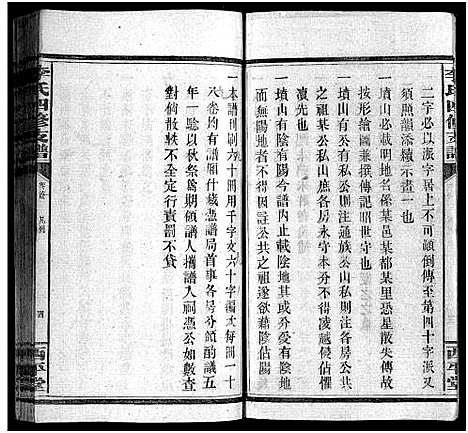 二字必以派字居上不可顛倒傳至第四十字派又
須照韻添續示晝一也
一墳山必載明地名係某邑某都某里恐星散失傳故
按形繪圖兼撰傳記昭世守也
一墳山有公有私公則注通族公山私則注各房公山
之祖某公私山庶各房永守本分不得凌越
一墳山有陰有陽今譜内止載陰地其或分受有陰地
而無陽地者不得因註公共之祖遂欲藉陰佔陽
視以爲公
一本譜刊刷六十冊用千字文六十字編次每冊一十
八卷均有譜廂什藏憑譜局首事各房分領酌議五
年一騐以秋祭爲期領譜人攜譜入祠憑公如數查
對倘散軼不全定行責罰不貸
李氏四修支譜
卷首
凡例
四
西平堂
李氏四修支譜
西平堂